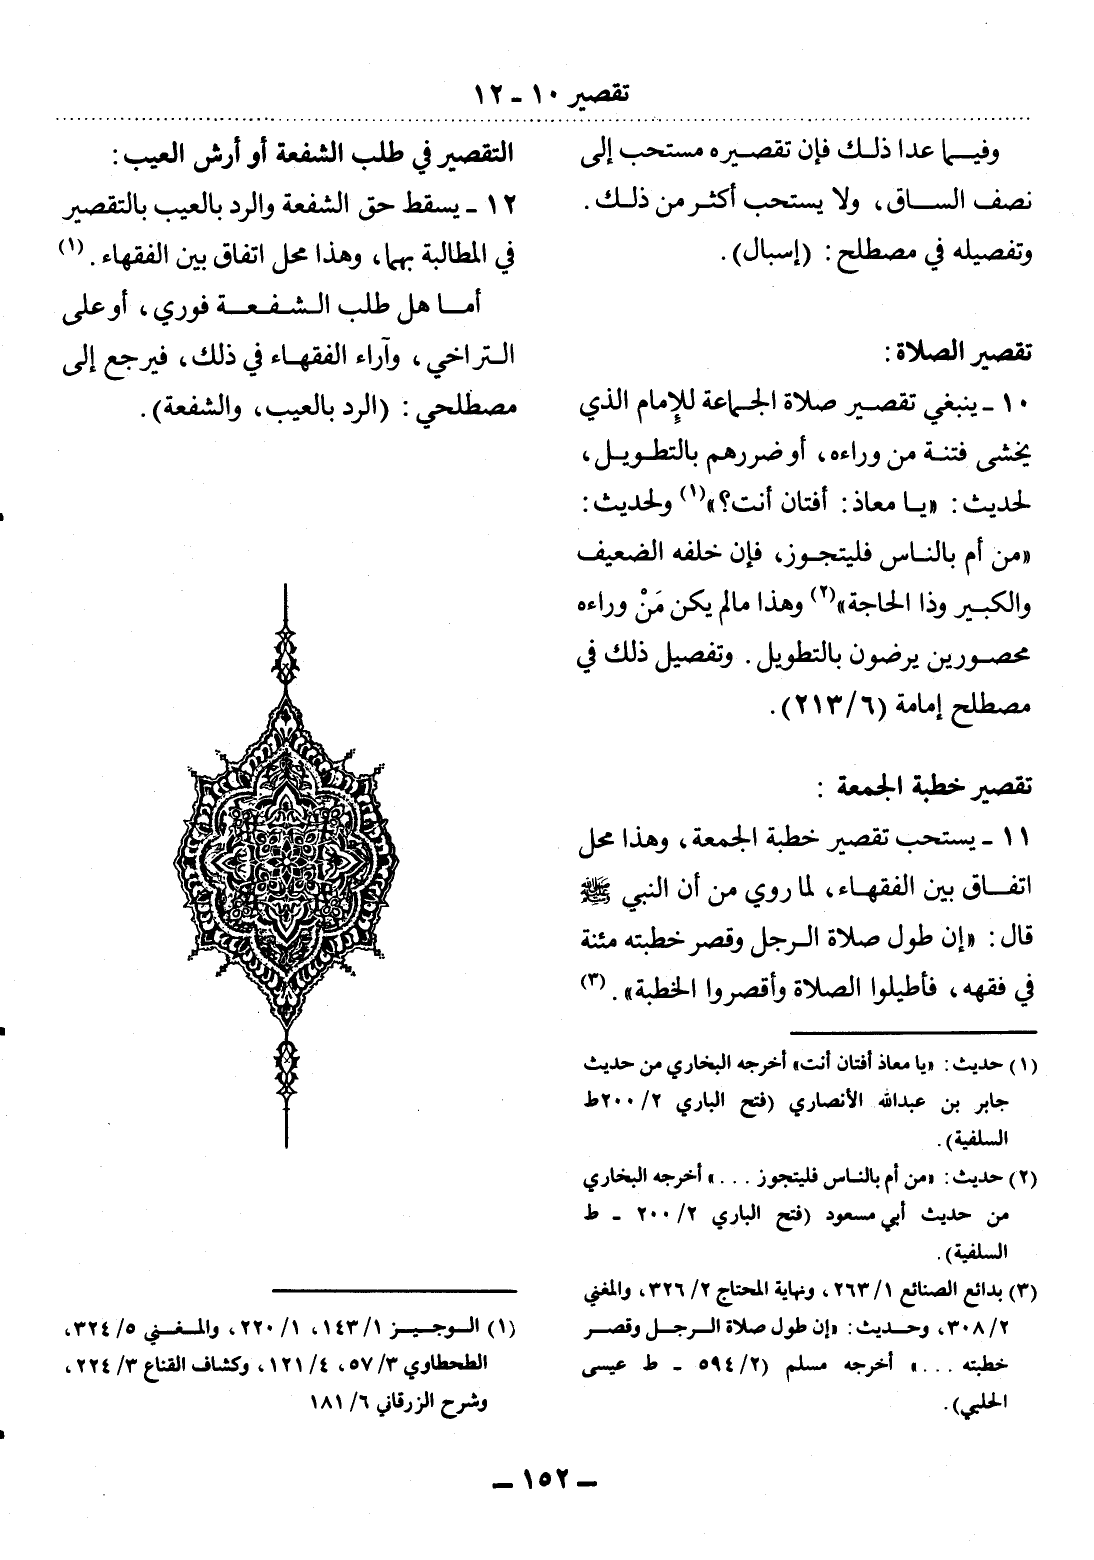 تقصير ١٠ ـ ١٢
وفيما عدا ذلك فإن تقصيره مستحب إلى
نصف الساق، ولا يستحب أكثر من ذلك.
وتفصيله في مصطلح: (إسبال).
تقصير الصلاة:
١٠ ـ ينبغي تقصير صلاة الجماعة للإمام الذي
يخشى فتنة من وراءه، أو ضررهم بالتطويل،
لحديث: «يا معاذ: أفتان أنت؟»(١) ولحديث:
«من أم بالناس فليتجوز، فإن خلفه الضعيف
والكبير وذا الحاجة»(٢) وهذا مالم يكن مَنْ وراءه
محصورين يرضون بالتطويل. وتفصيل ذلك في
مصطلح إمامة (٢١٣/٦).
تقصير خطبة الجمعة :
١١ ـ يستحب تقصير خطبة الجمعة، وهذا محل
اتفاق بين الفقهاء، لما روي من أن النبي ﷺ
قال: «إن طول صلاة الرجل وقصر خطبته مئنة
في فقهه، فأطيلوا الصلاة وأقصروا الخطبة». (٣)
(١) حديث: «يا معاذ أفتان أنت» أخرجه البخاري من حديث
جابر بن عبدالله الأنصاري (فتح الباري ٢٠٠/٢ط
السلفية).
(٢) حديث: «من أم بالناس فليتجوز ...» أخرجه البخاري
من حديث أبي مسعود (فتح الباري ٢٠٠/٢ ـ ط
السلفية).
(٣) بدائع الصنائع ٢٦٣/١، ونهاية المحتاج ٣٢٦/٢، والمغني
٣٠٨/٢، وحديث: «إن طول صلاة الرجل وقصر
خطبته ...» أخرجه مسلم (٥٩٤/٢ ـ ط عيسى
الحلبي).
التقصير في طلب الشفعة أو أرش العيب:
١٢ ـ يسقط حق الشفعة والرد بالعيب بالتقصير
في المطالبة بهما، وهذا محل اتفاق بين الفقهاء. (١)
أما هل طلب الشفعة فوري، أو على
التراخي، وآراء الفقهاء في ذلك، فيرجع إلى
مصطلحي: (الرد بالعيب، والشفعة).
(١) الوجيز ١٤٣/١، ٢٢٠/١، والمغني ٣٢٤/٥،
الطحطاوي ٥٧/٣، ١٢١/٤، وكشاف القناع ٢٢٤/٣،
وشرح الزرقاني ١٨١/٦
ـ ١٥٢ ـ